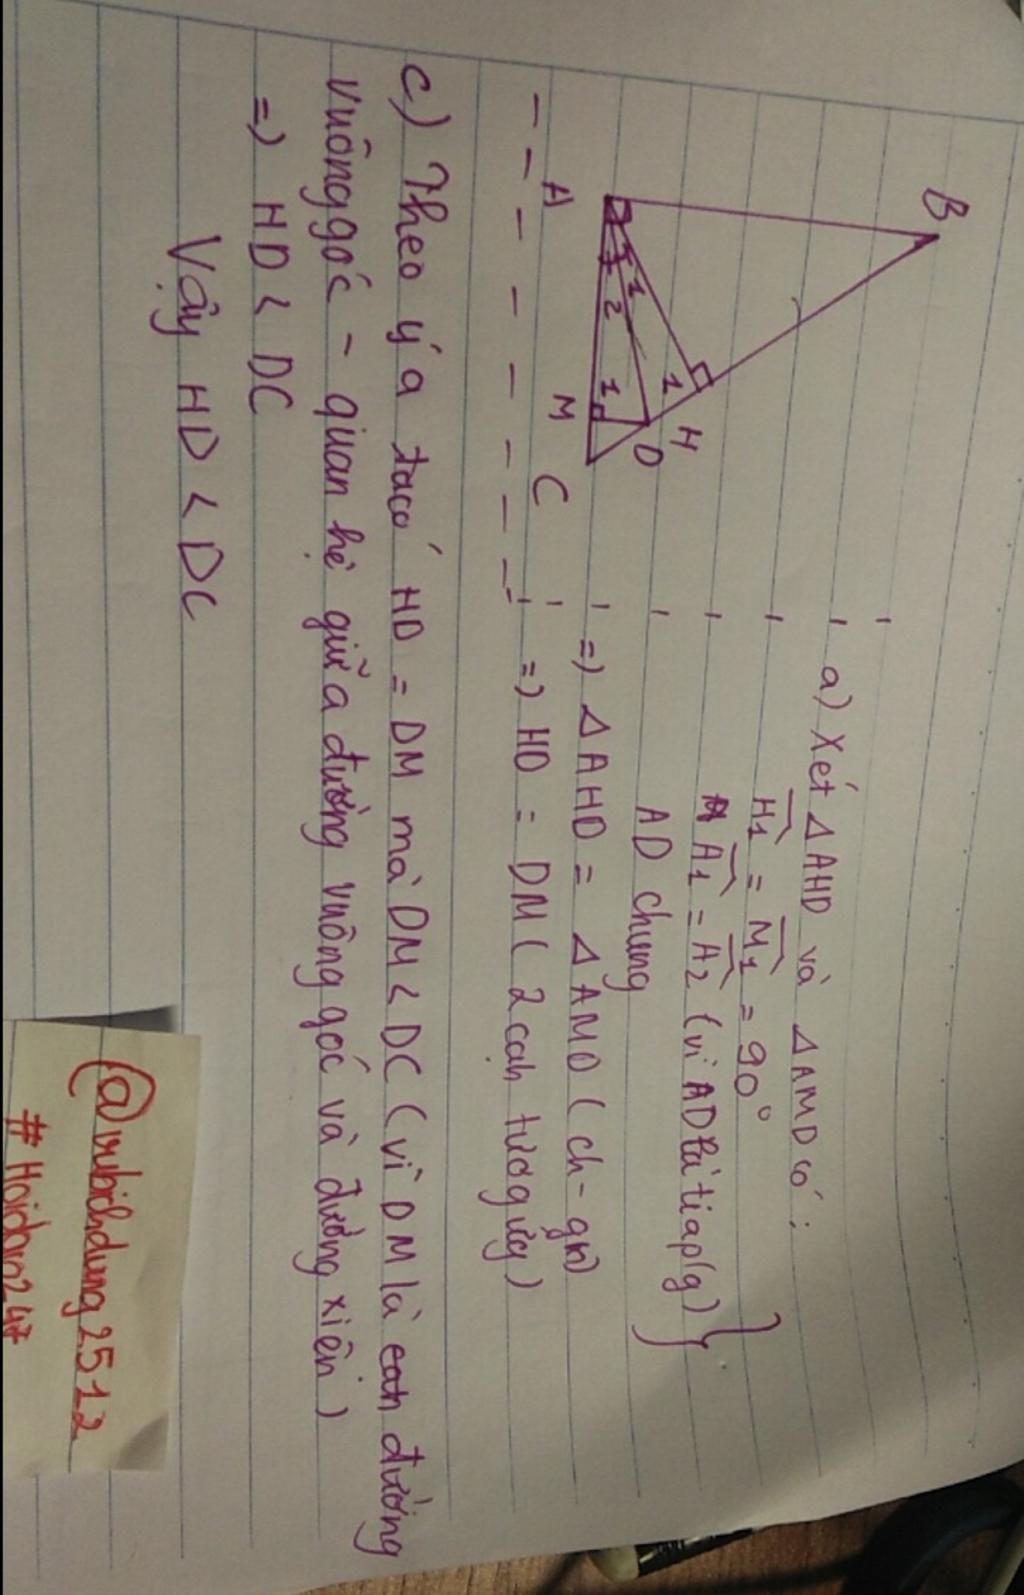 B
A
1
2
1
1
H
D
M
C
a) Xét ΔAHD và ΔAMD có :
H1 = M1 = 90°
A1 = A2 (vì AD là tia p(g)
AD chung
=) ΔAHD = ΔAMD ( ch - gn)
=) HD = DM ( 2 cạh tươg ứg )
c) Theo ý a ta có HD = DM mà DM < DC ( vì DM là đường
vuông góc - quan hệ giữa đường vuông góc và đường xiên )
=) HD < DC
Vậy HD < DC
@vubichdung2512
# Hoidap247